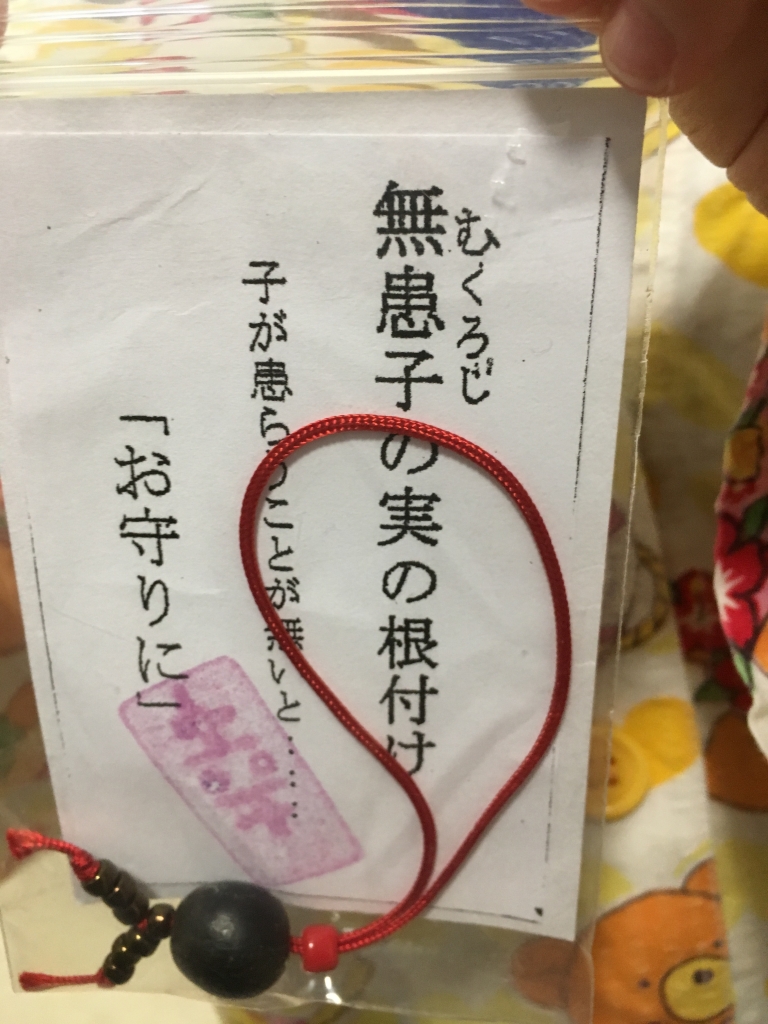 むくろじ
無患子の実の根付け
子が患らうことが無いと……
「お守りに」